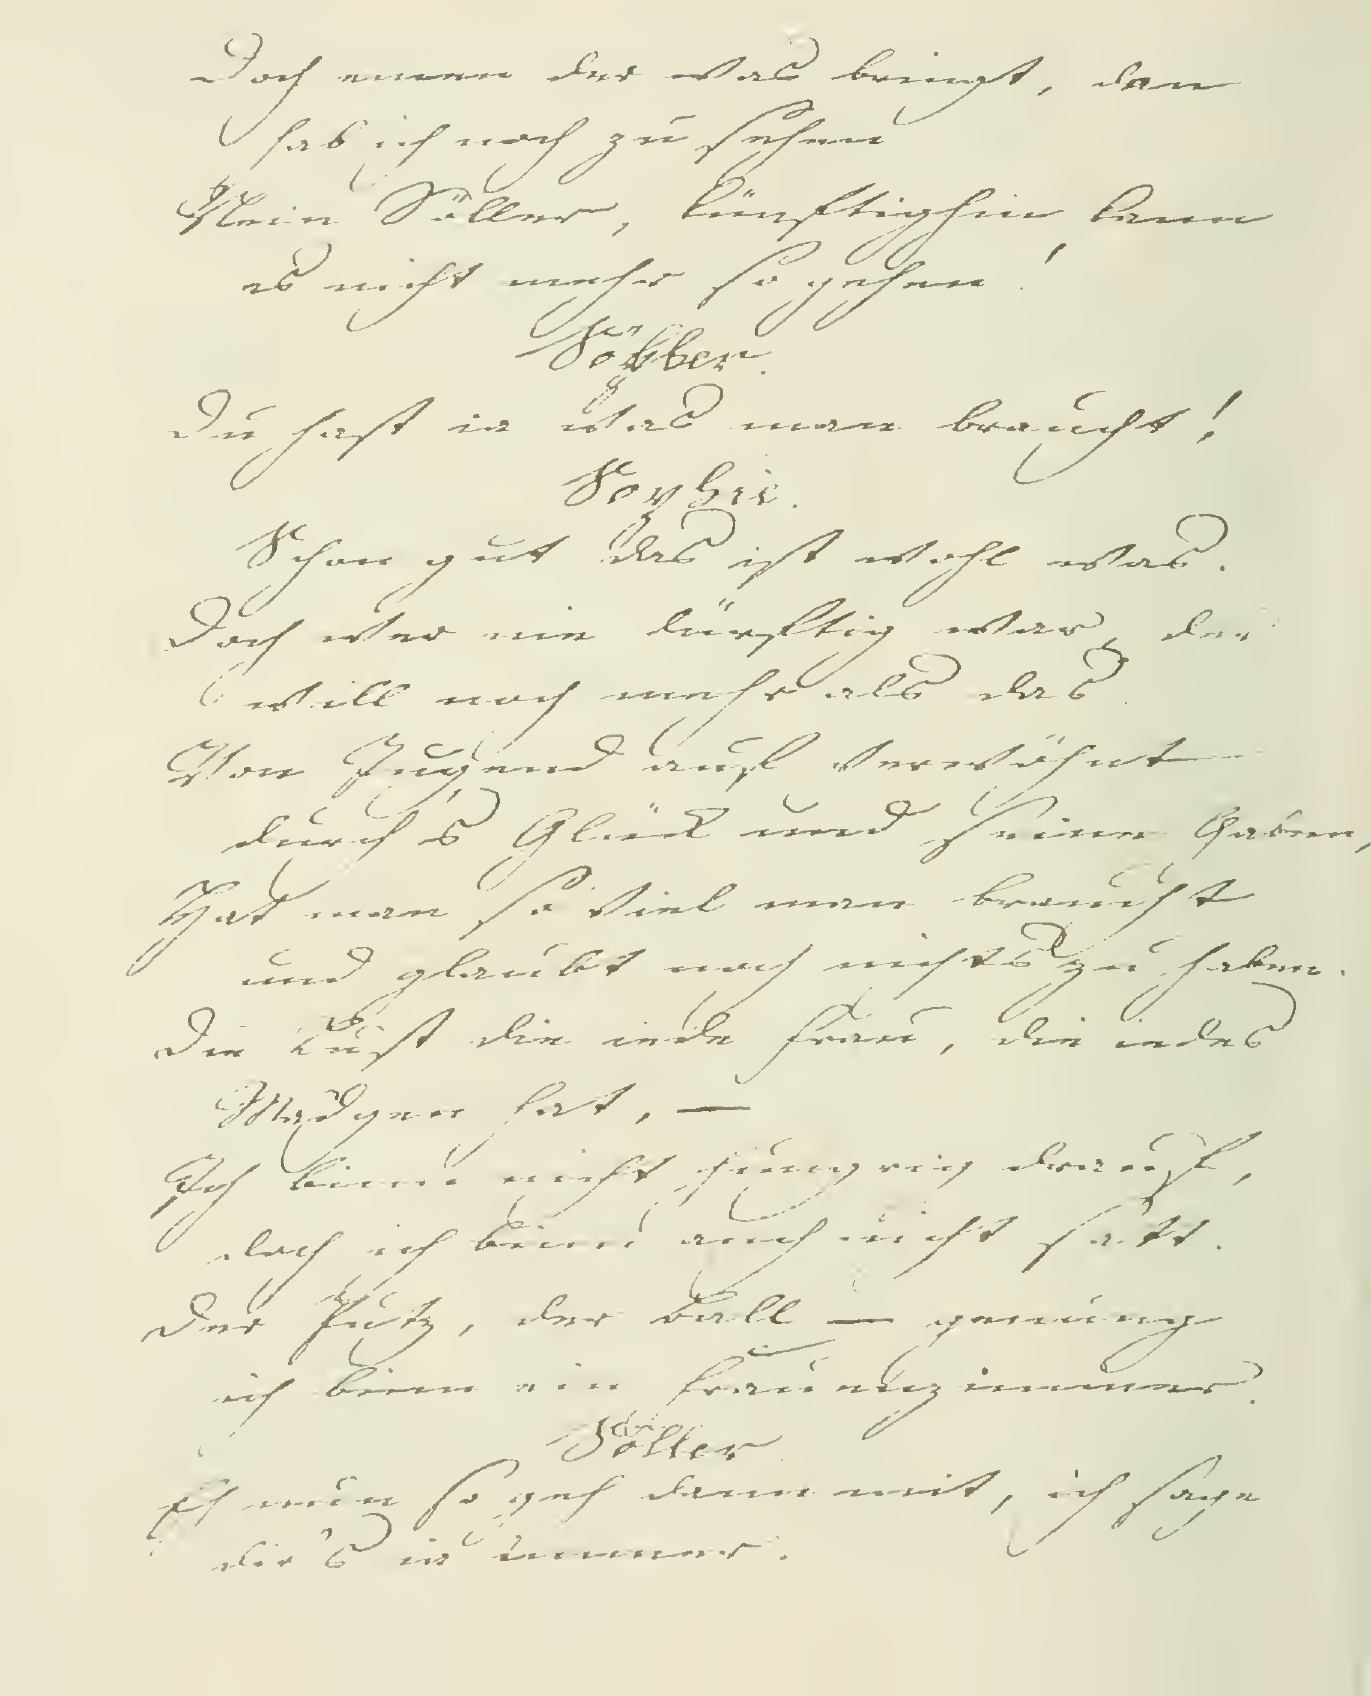 Doch einen der was bringt, den
hab ich noch zu sehen
Nein Söller, künftighin kann
es nicht mehr so gehen!
Söller.
Du hast ia was man braucht!
Sophie.
Schon gut das ist wohl was.
Doch wer nie dürftig war, der
will noch mehr als das.
Von Jugend auf verwöhnt
durch's Glück und seine Gaben,
Hat man so viel man braucht
und glaubt noch nichts zu haben.
Die Lust die iede Frau, die iedes
Mädgen hat, —
Ich binn nicht hungrig drauf,
doch ich binn auch nicht satt.
Der Putz, der Ball — genung
ich binn ein Frauenzimmer.
Söller
Eh nun so geh denn mit, ich sage
dir's ia immer.